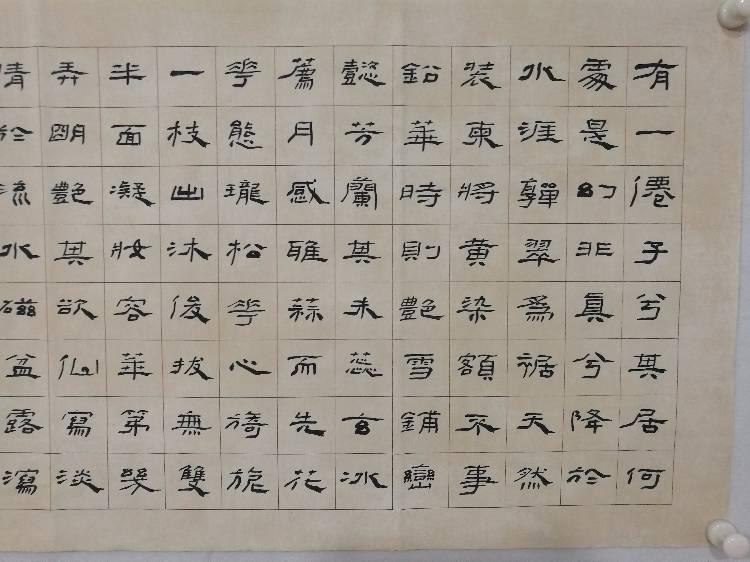 有一僊子兮其居何
處是幻非真兮降於
水涯嚲翠為裾天然
装柬將黄染額不事
鉛華時則艷雪鋪巒
懿芳蘭其未蕊玄冰
薦月感雎蒜而先花
花態瓏松花心旖旎
一枝出沐俊拔無雙
半面凝妝容華第幾
弄明艷其欲仙寫淡
情於流水磁盆露瀉